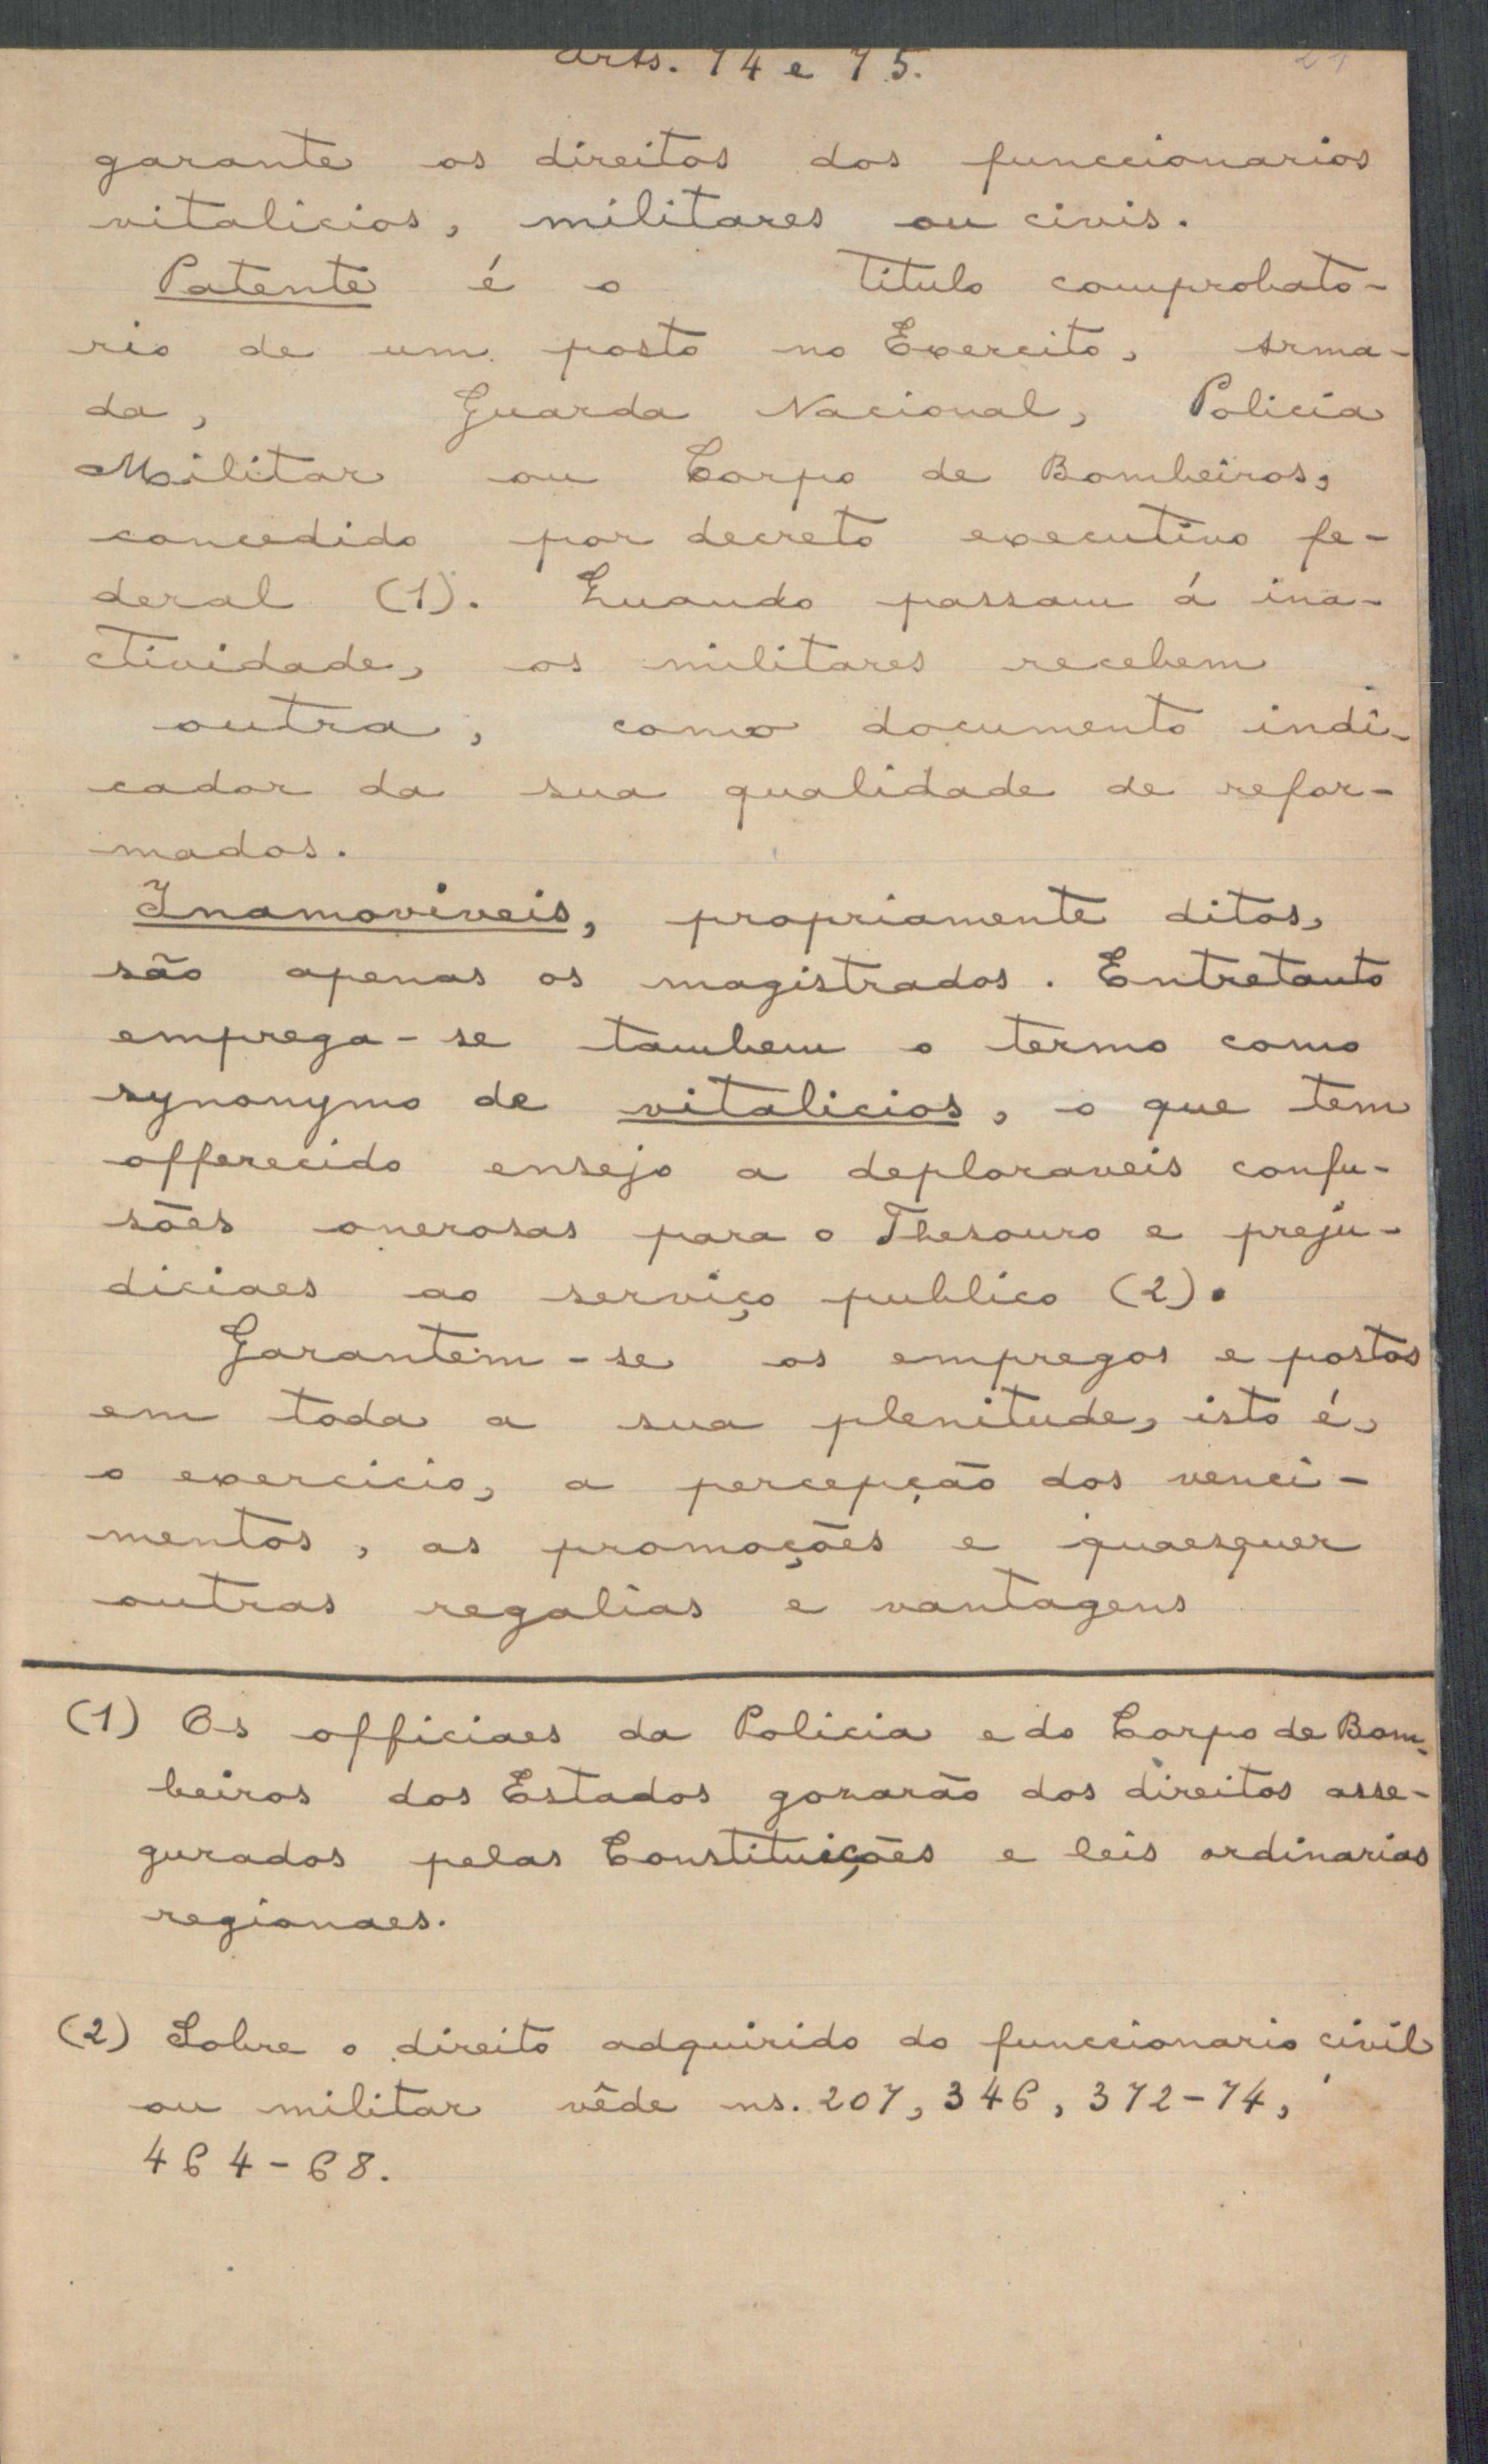 Arts. 74 e 75.
21
garante os direitos dos funccionarios
vitalicios, militares ou civis.
Patente é o titulo comprobato-
rio de um posto no Exercito, Arma-
da, Guarda Nacional, Policia
Militar ou Corpo de Bombeiros,
concedido por decreto executivo fe-
deral (1). Quando passam á ina-
ctividade, os militares recebem
outra, como documento indi-
cador da sua qualidade de refor-
mados.
Inamoviveis, propriamente ditos,
são apenas os magistrados. Entretanto
emprega-se tambem o termo como
synonymo de vitalicios, o que tem
offerecido ensejo a deploraveis confu-
sões onerosas para o Thesouro e preju-
diciaes ao serviço publico (2).
Garantem-se os empregos e postos
em toda a sua plenitude, isto é,
o exercicio, a percepção dos venci-
mentos, as promoções e quaesquer
outras regalias e vantagens
(1) Os officiaes da Policia e do Corpo de Bom-
beiros dos Estados gozarão dos direitos asse-
gurados pelas Constituições e leis ordinarias
regionaes.
(2) Sobre o direito adquirido do funccionario civil
ou militar vêde ns. 207, 346, 372-74,
464-68.